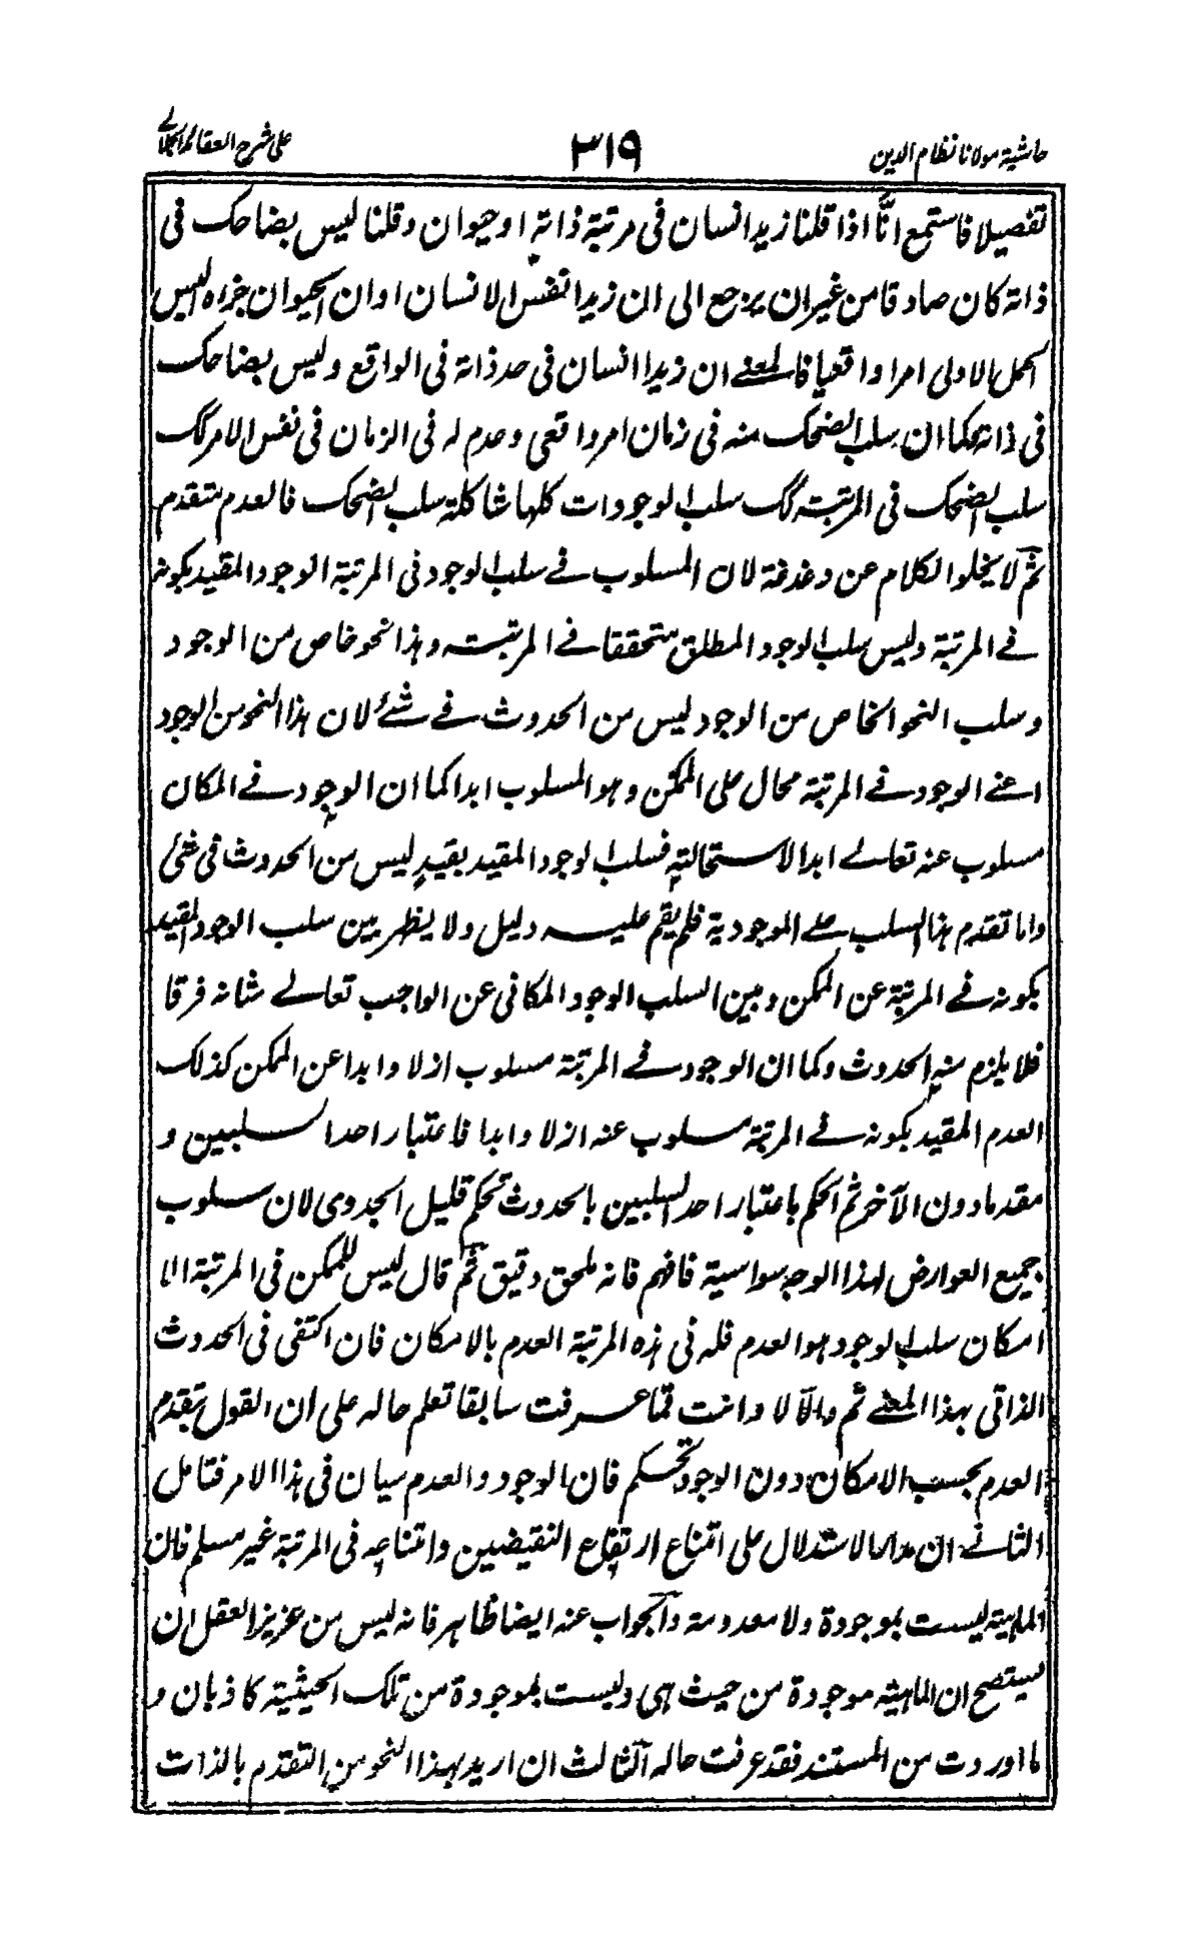 حاشیة مولانا نظام الدین
٣١٩
علی شرح العقائد الجلالے
تفصیلا فاستمع انّا اذا قلنا زید انسان فی مرتبة ذاته او حیوان وقلنا لیس بضاحک فی
ذاته کان صادقا من غیر ان یرجع الی ان زیدا نفس الانسان او ان الحیوان جزاه الیس
الحمل الاولی امرا واقعیا فالمعنے ان زیدا انسان فی حد ذاته فی الواقع ولیس بضاحک
فی ذاته کما ان سلب الضحک منه فی زمان امر واقعی وعدم له فی الزمان فی نفس الامر کک
سلب الضحک فی المرتبة کک سلب الوجودات کلها شاکلة سلب الضحک فالعدم متقدم
ثم لا یخلوا الکلام عن دغدغة لان المسلوب فے سلب الوجود فی المرتبة الوجود المقید بکونه
فے المرتبة ولیس سلب الوجود المطلق متحققا فے المرتبت وہذا نحو خاص من الوجود
وسلب النحو الخاص من الوجود لیس من الحدوث فے شئے لان هذا النحو من الوجود
اعنے الوجود فے المرتبة محال علی الممکن وہو المسلوب ابدا کما ان الوجود فے المکان
مسلوب عنه تعالے ابدا لاستحالته فسلب الوجود المقید بقید لیس من الحدوث فی شئ
واما تقدم هذا السلب علے الموجودیة فلم یقم علیه دلیل ولا یظهر بین سلب الوجود المقید
بکونه فے المرتبة عن الممکن وبین السلب الوجود المکانی عن الواجب تعالے شانه فرقا
فلا یلزم منه الحدوث وکما ان الوجود فے المرتبة مسلوب ازلا وابدا عن الممکن کذلک
العدم المقید بکونه فے المرتبة مسلوب عنه ازلا وابدا فاعتبار احد السلبین و
مقدما دون الآخر ثم الحکم باعتبار احد السلبین بالحدوث تحکم قلیل الجدوی لان سلوب
جمیع العوارض لهذا الوجه سواسیة فافهم فانه ملحق دقیق ثم قال لیس للممکن فی المرتبة الا
امکان سلب الوجود ہو العدم فله فی هذه المرتبة العدم بالامکان فان اکتفی فی الحدوث
الذاتی بهذا المعنے ثم والّا لا وانت قما عرفت سابقا تعلم حاله علی ان القول بتقدم
العدم بحسب الامکان دون الوجود تحکم فان الوجود والعدم سیان فی هذا الامر فتامل
الثانے ان مدار الاستدلال علی امتناع ارتفاع النقیضین وامتناعه فی المرتبة غیر مسلم فان
الماہیة لیست بموجودة ولا معدومة والجواب عنه ایضا ظاهر فانه لیس من عزیز العقل ان
یستصح ان الماہیة موجودة من حیث ہی ولیست بموجودة من تلک الحیثیة کاذبان و
ما اوردت من المستند فقد عرفت حاله الثالث ان ارید بهذا النحو من التقدم بالذات